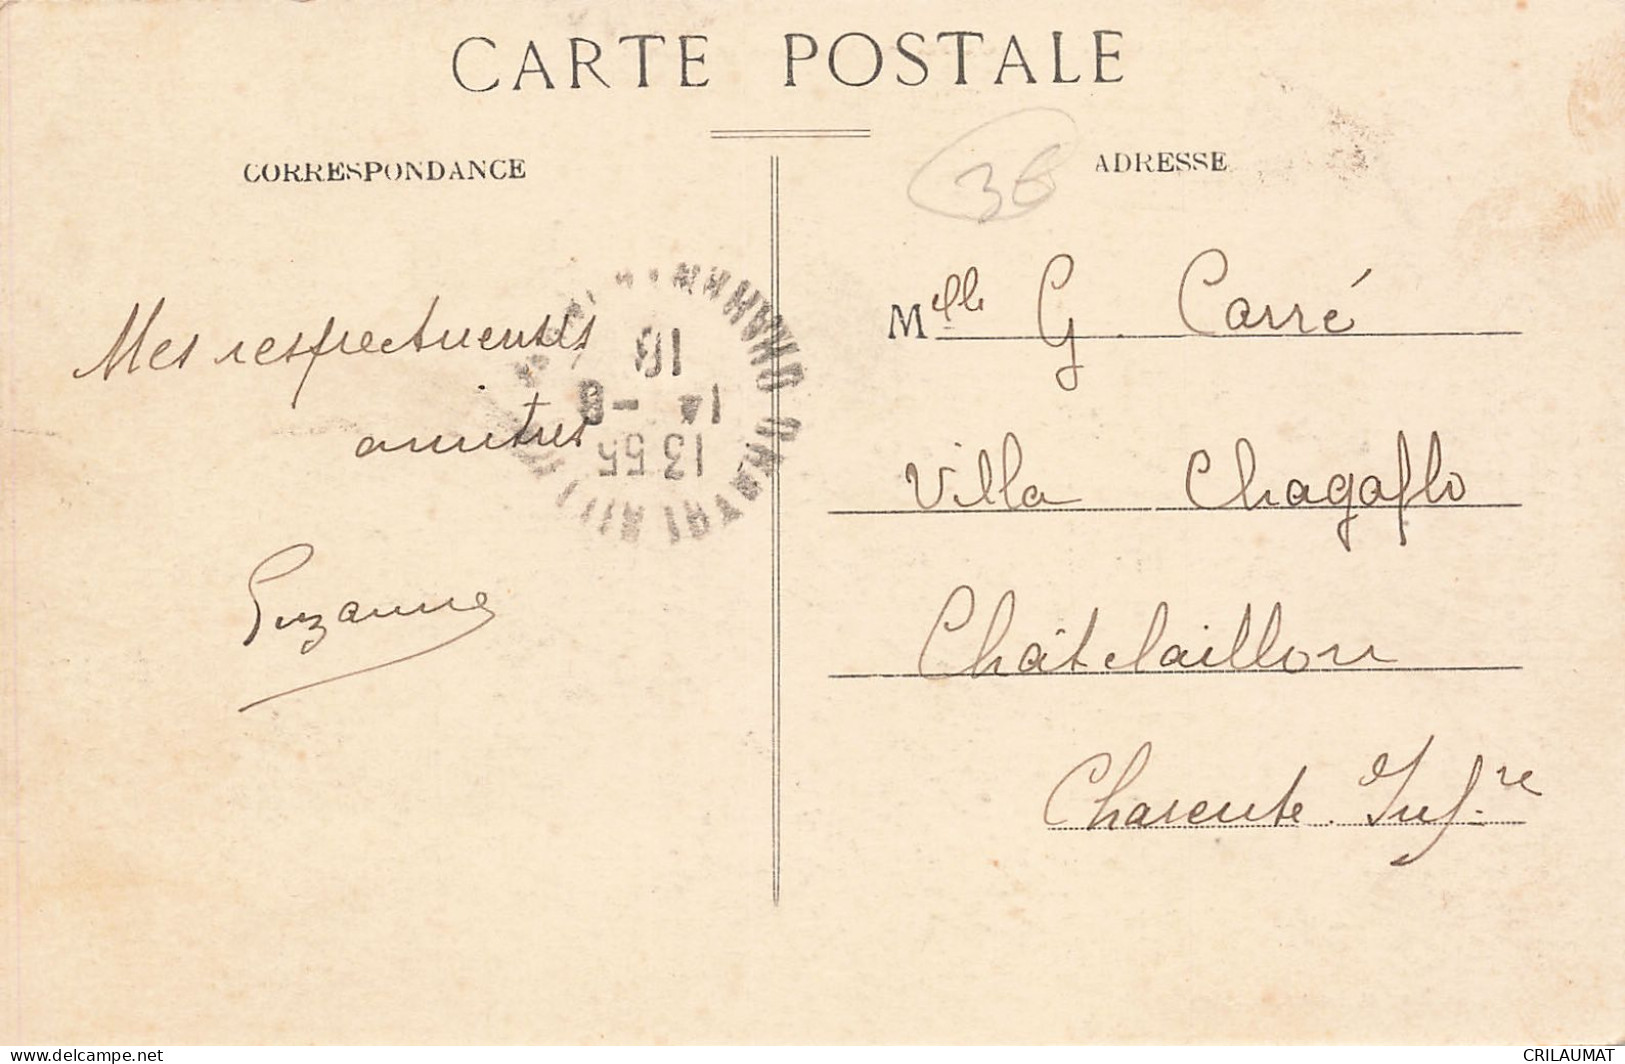 CARTE POSTALE
CORRESPONDANCE
ADRESSE
3€
Mes respectueuses
amitiés
Suzanne
Mlle G. Carré
Villa Chagaflo
Châtelaillon
Charente Infre
13 55
14 -8
10
www.delcampe.net
CRILAUMAT